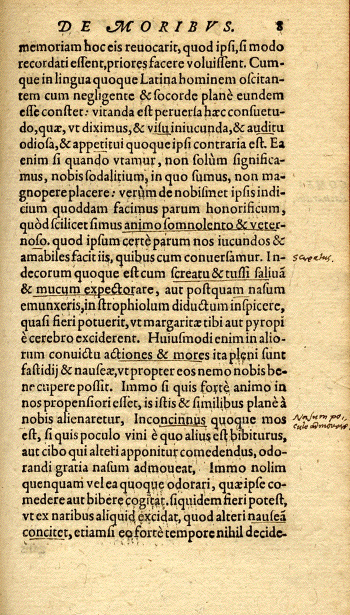 DE MORIBVS. 8
memoriam hoc eis reuocarit, quod ipsi, si modo
recordati essent, priores facere voluissent. Cum-
que in lingua quoque Latina hominem oscitan-
tem cum negligente & socorde planè eundem
esse constet: vitanda est peruersa hæc consuetu-
do, quæ, vt diximus, & visu iniucunda, & auditu
odiosa, & appetitui quoque ipsi contraria est. Ea
enim si quando vtamur, non solùm significa-
mus, nobis sodalitium, in quo sumus, non ma-
gnopere placere: verùm de nobismet ipsis indi-
cium quoddam facimus parum honorificum,
quòd scilicet simus animo somnolento & veter-
noso. quod ipsum certè parum nos iucundos &
amabiles facit iis, quibus cum conuersamur. In-
decorum quoque est cum screatu & tussi saliuā
& mucum expectorare, aut postquam nasum
emunxeris, in strophiolum diductum inspicere,
quasi fieri potuerit, vt margaritæ tibi aut pyropi
è cerebro exciderent. Huiusmodi enim in alio-
rum conuictu actiones & mores ita pleni sunt
fastidij & nauseæ, vt propter eos nemo nobis be-
ne cupere possit. Immo si quis fortè animo in
nos propensiori esset, is istis & similibus planè à
nobis alienaretur, Inconcinnus quoque mos
est, si quis poculo vini è quo alius est bibiturus,
aut cibo qui alteri apponitur comedendus, odo-
randi gratia nasum admoueat, Immo nolim
quenquam vel ea quoque odorari, quæ ipse co-
medere aut bibere cogitat. siquidem fieri potest,
vt ex naribus aliquid excidat, quod alteri nauseā
concitet, etiamsi eo fortè tempore nihil decide-
Nasum po-
culo admouere